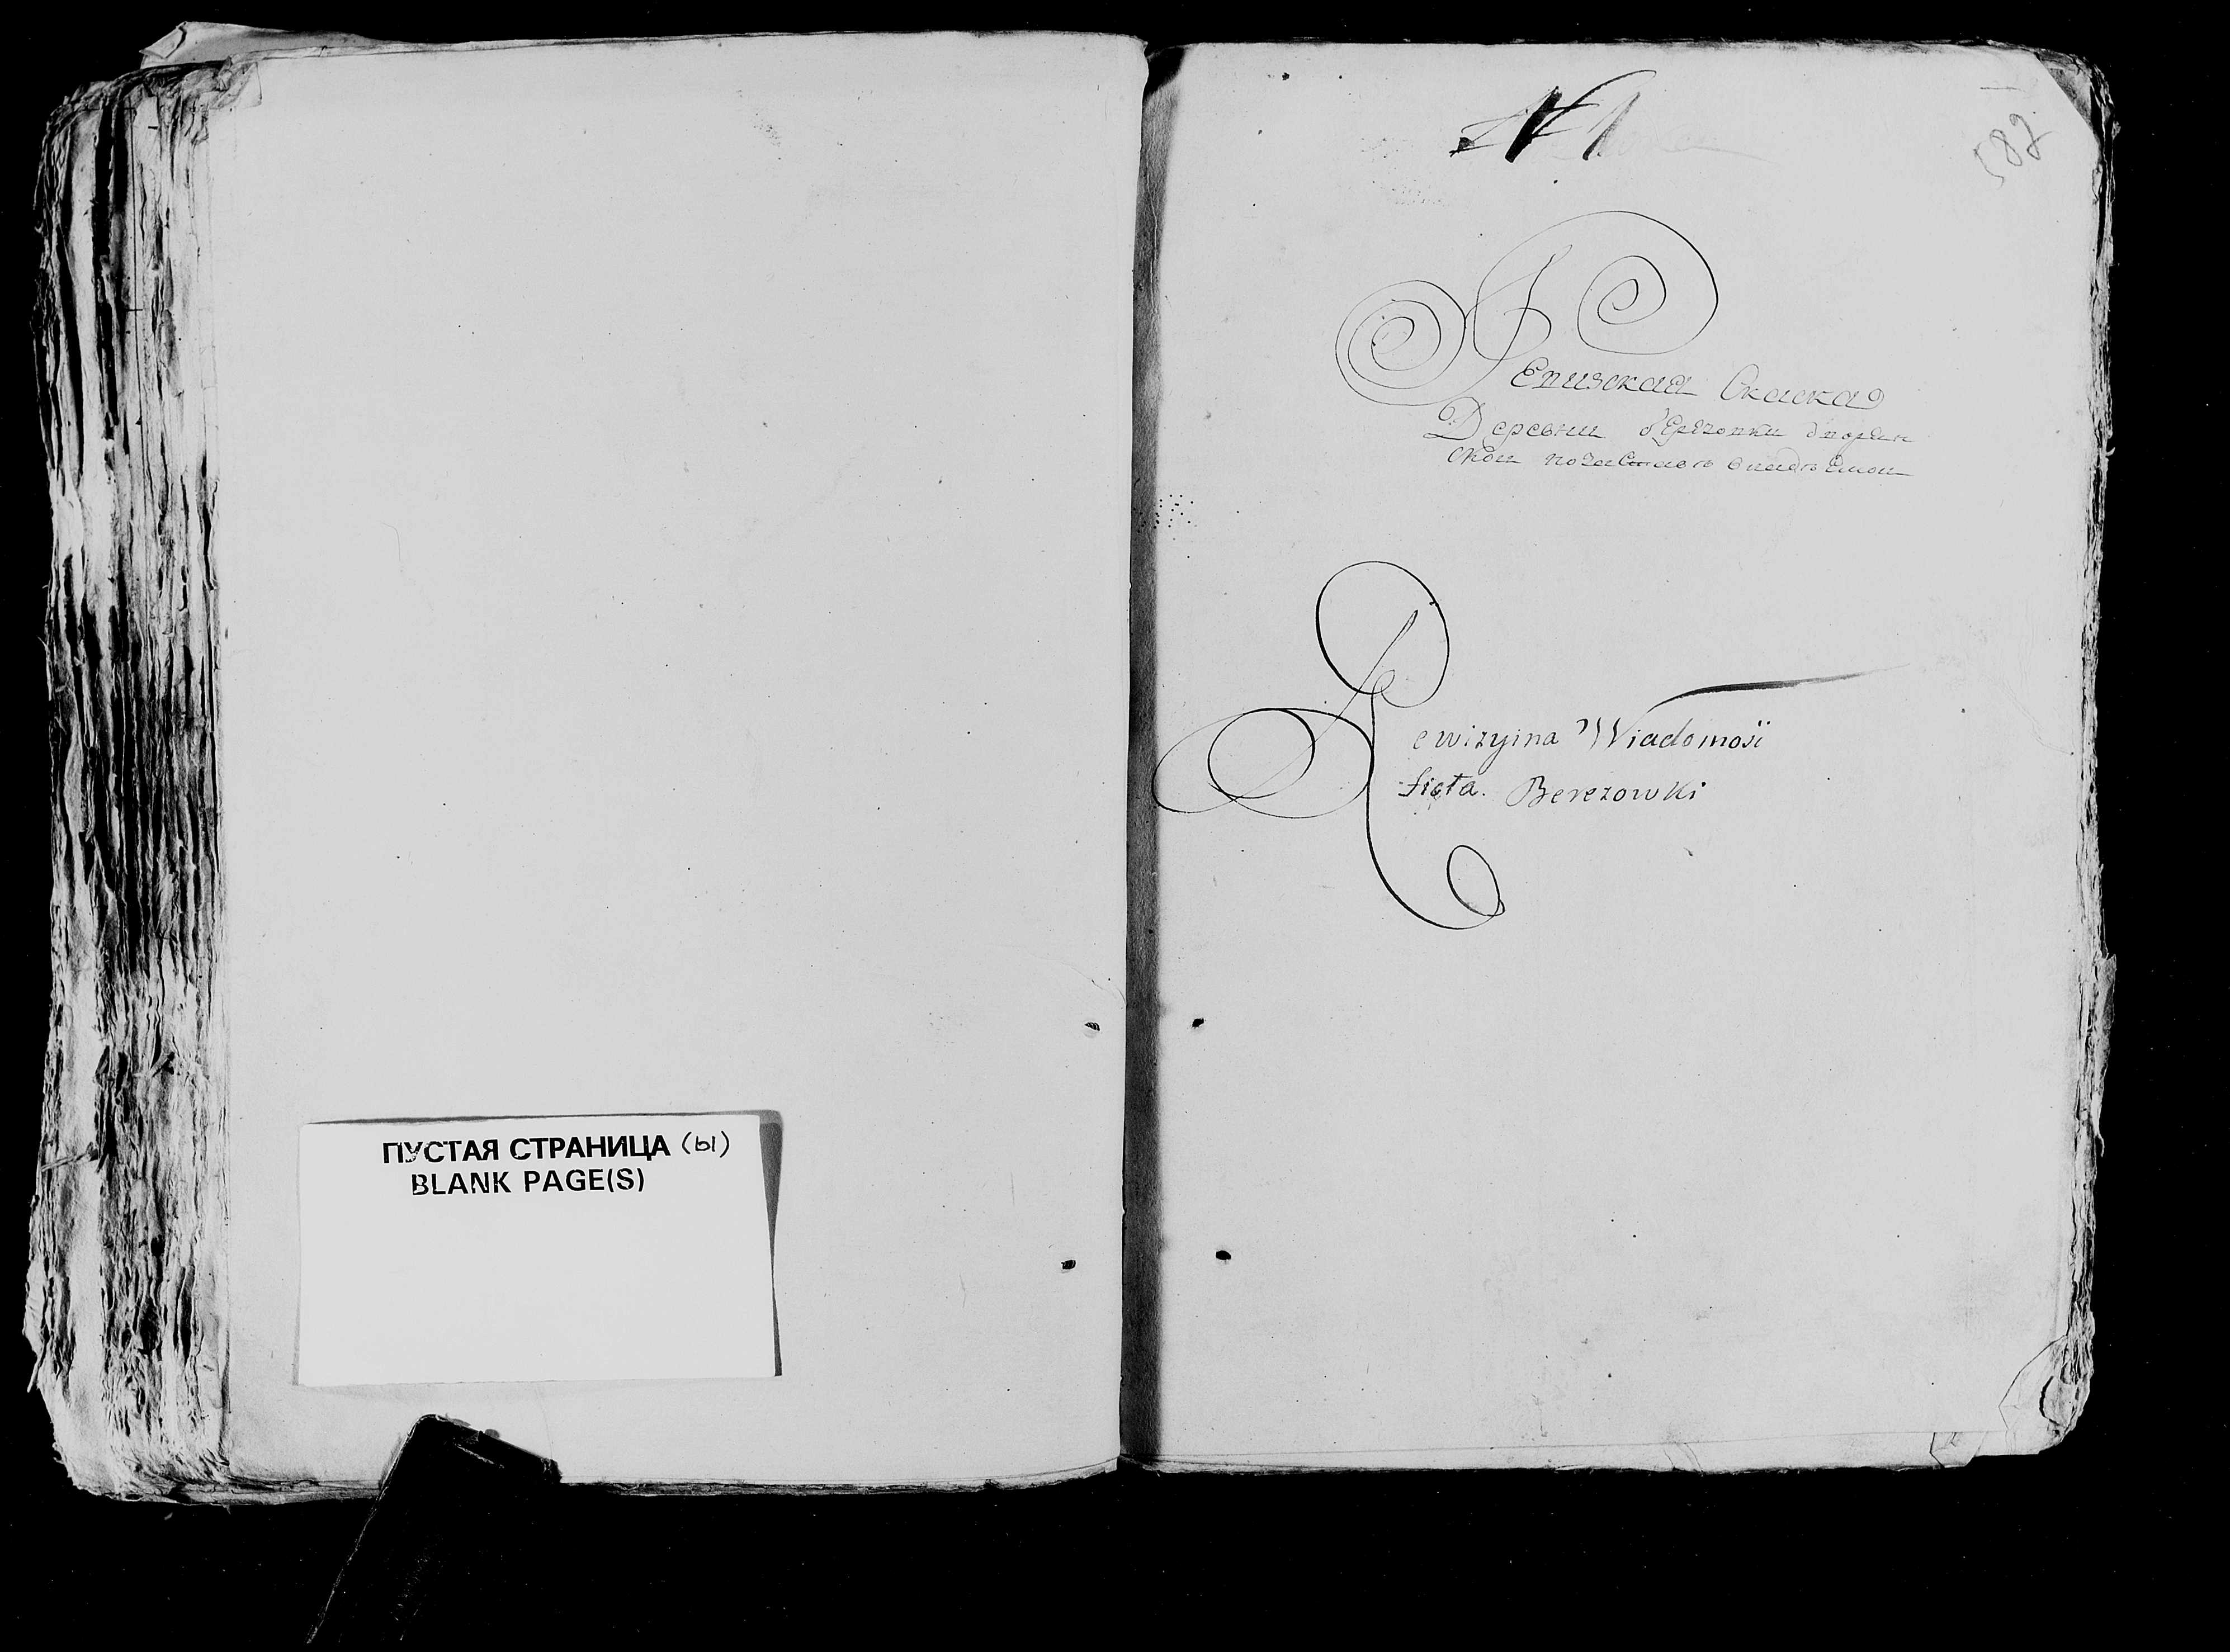 ПУСТАЯ СТРАНИЦА (ы)
BLANK PAGE(S)
N 1
587
Ревизская Скаска
Деревни березовки дворян
ской
Rewizyina Wiadomość
sioła. Berezowki